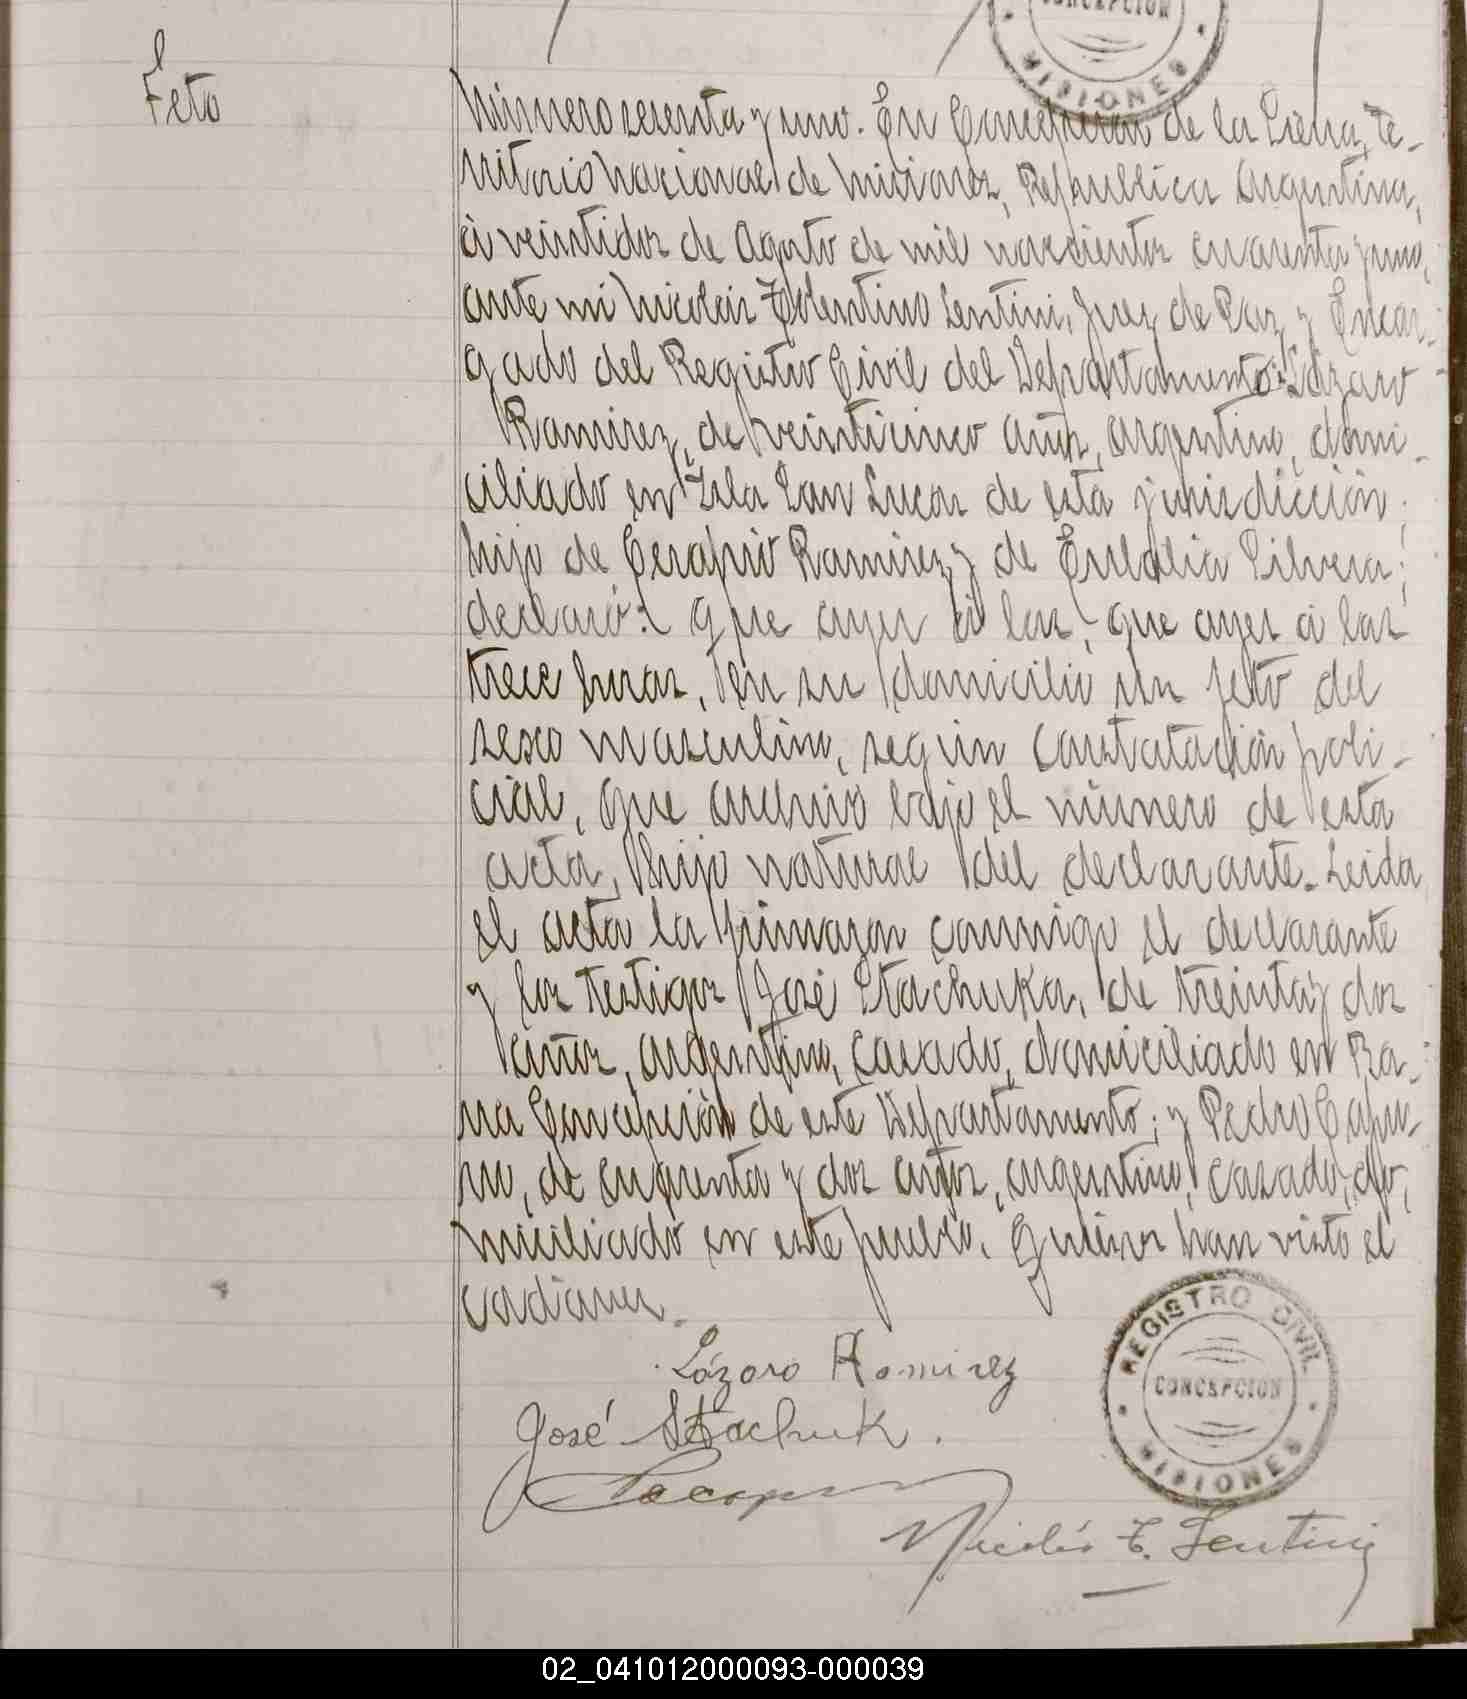 CONCEPCION
MISIONES
Feto
Número sesenta y uno. En Concepción de la Sierra, te-
rritorio Nacional de Misiones, Republica Argentina,
á veintidos de Agosto de mil novecientos cuarenta y uno,
ante mi Nicolás Tolentino Sentini, Juez de Paz y Encar-
gado del Registro Civil del Departamento: Lázaro
Ramirez, de veinticinco años, argentino, domi-
ciliado en Isla San Lucas de esta jurisdicción;
hijo de Cerapio Ramirez y de Eulalia Silvera;
declaró: que ayer á las, que ayer á las
trece horas, en su domicilio un feto del
sexo masculino, según constatación poli-
cial, que archivo bajo el número de esta
acta, hijo natural del declarante. Leida
el acta la firmaron conmigo el declarante
y los testigos José Stachuka, de treinta y dos
años, argentino, casado, domiciliado en Ba-
rra Concepción de este Departamento; y Pedro
de cuarenta y dos años, argentino, casado, do-
miciliado en este pueblo. Quienes han visto el
cadaver.
Lázaro Ramirez
José Stachuk.
Nicolás T. Sentini
REGISTRO CIVIL
CONCEPCION
MISIONES
02_041012000093-000039